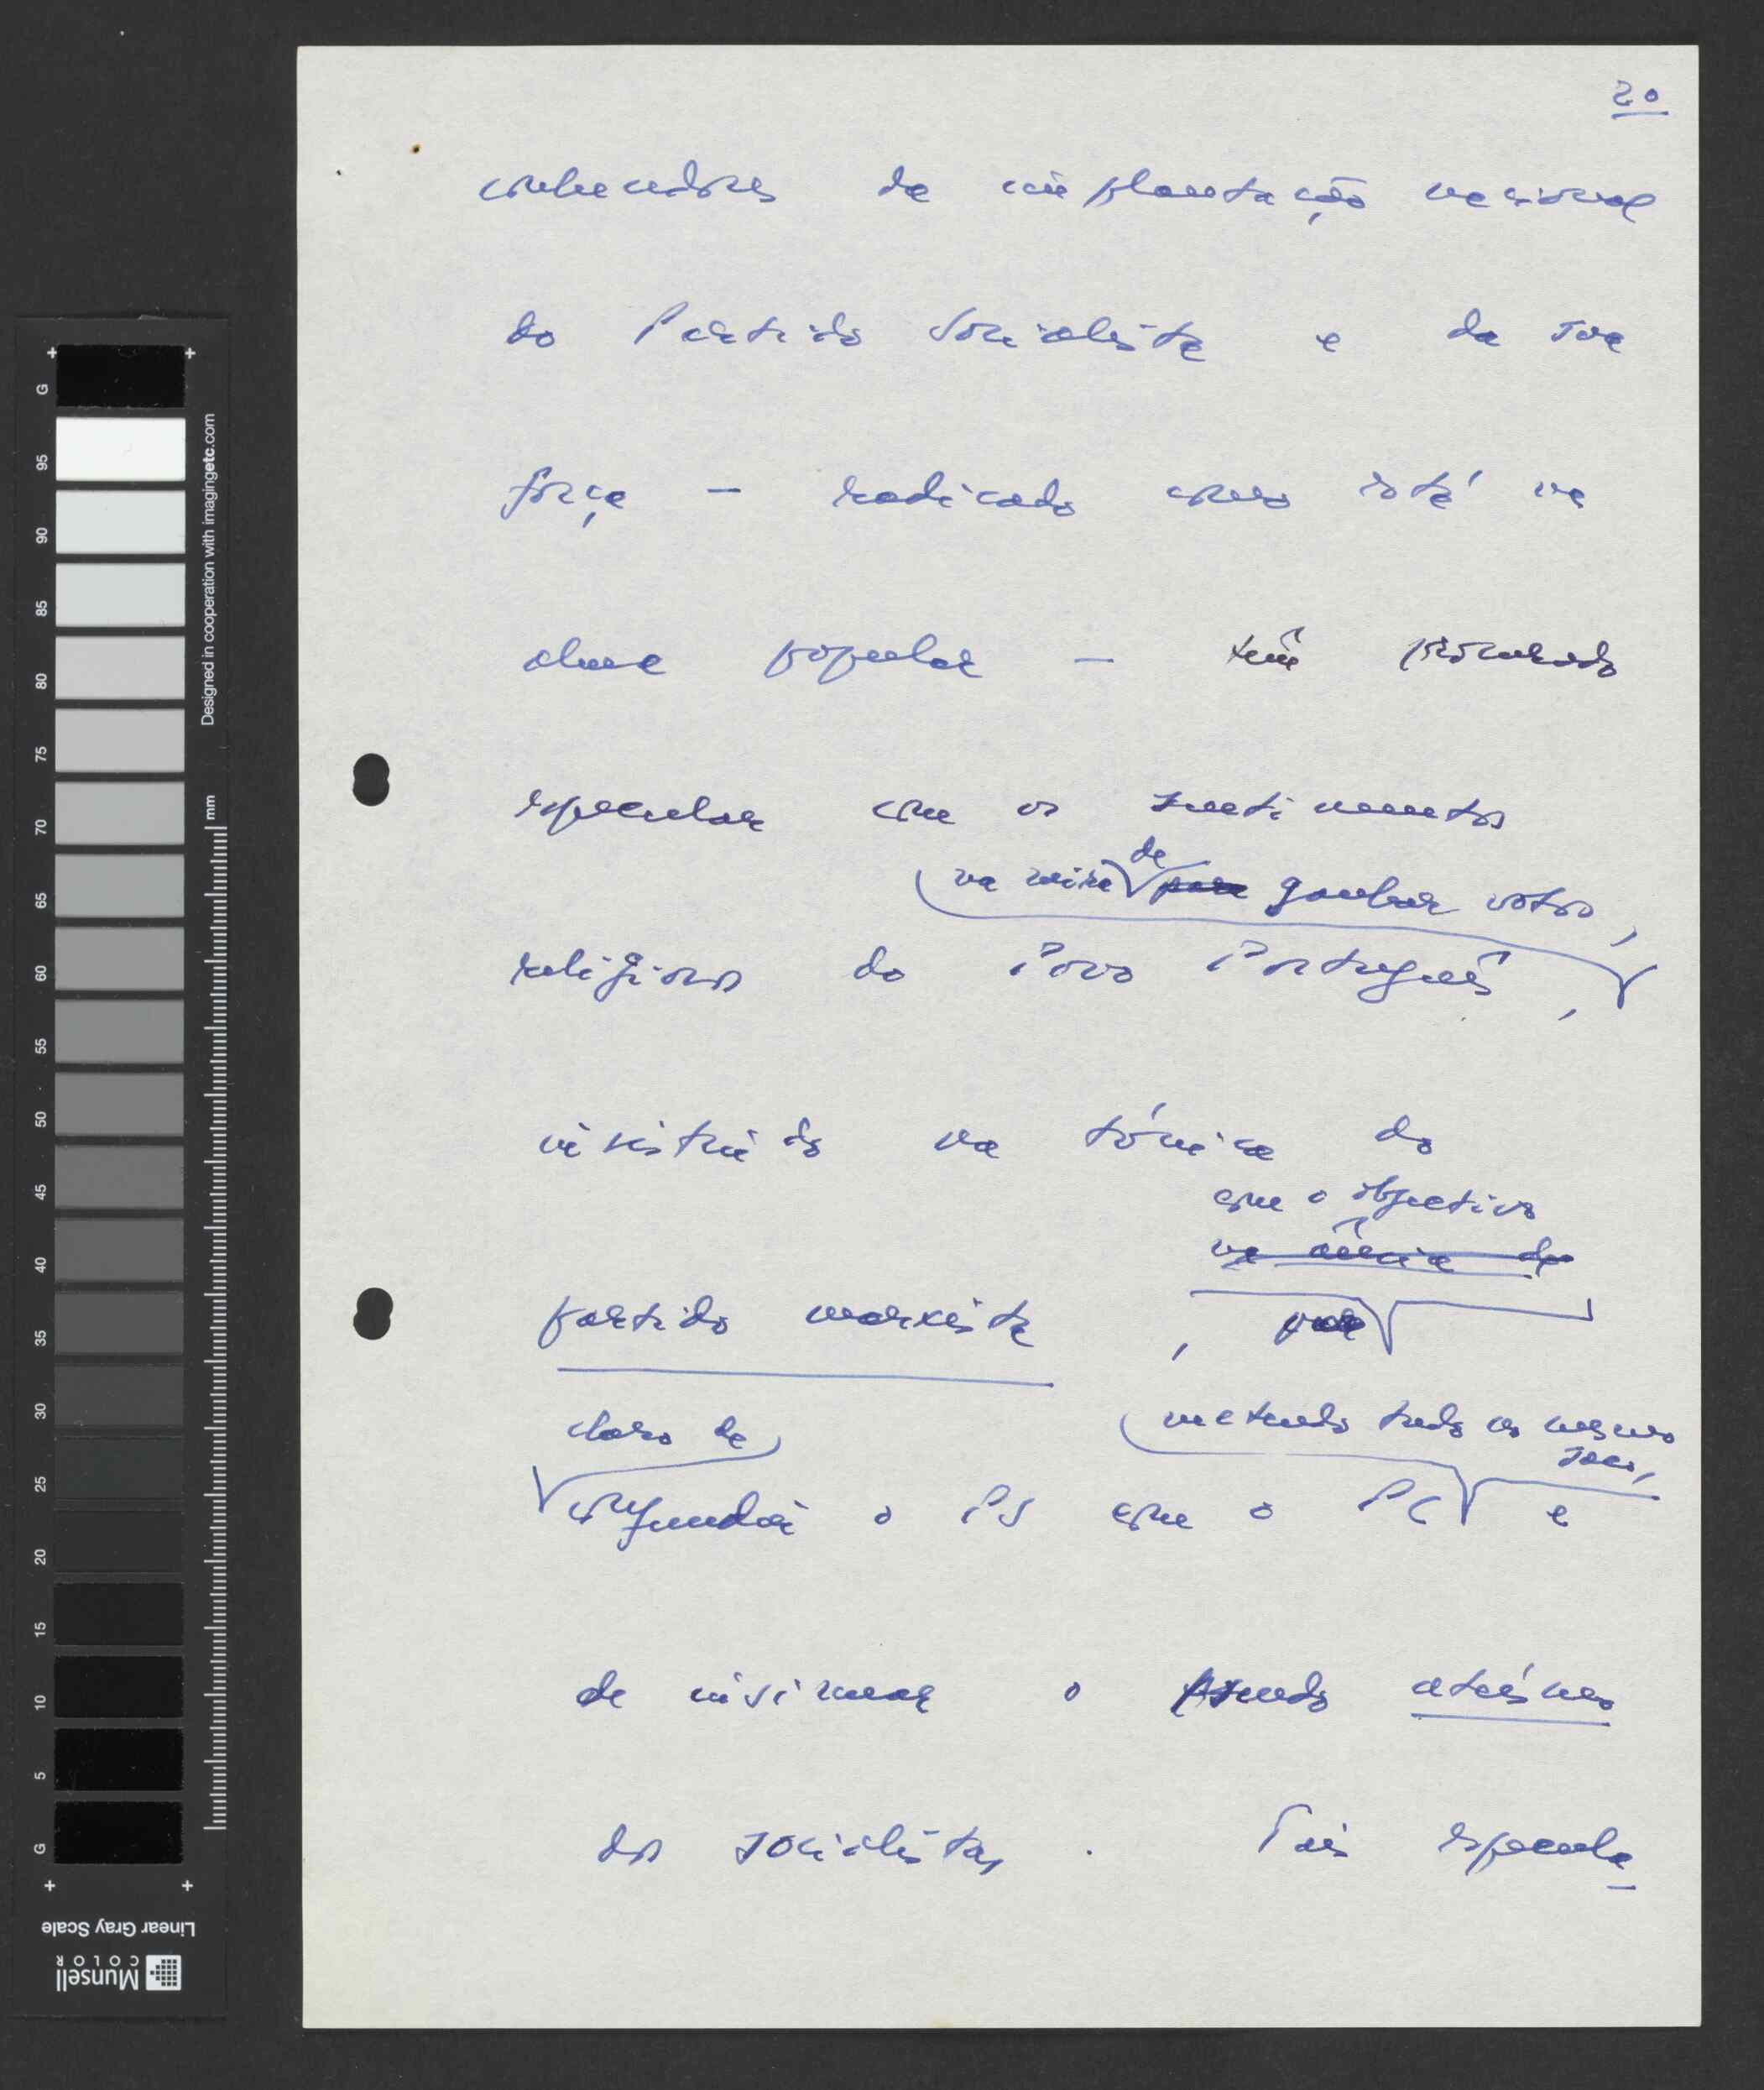 20
conhecedores da implantação nacional
do Partido Socialista e da sua
força – radicado como está na
alma popular – têm procurado
especular com os sentimentos
na mira de para ganhar votos,
religiosos do Povo Português,
insistindo na tónica do
com o objectivo
na ânsia de
partido marxista, para
claro de metendo tudo no mesmo
saco,
confundir o PS com o PC e
de insinuar o pseudo ateísmo
dos socialistas. Tais especula
G
95
90
85
80
75
70
65
60
55
50
45
40
35
30
25
20
15
10
5
G
Designed in cooperation with imagingetc.com
mm
Linear Gray Scale
Munsell
COLOR